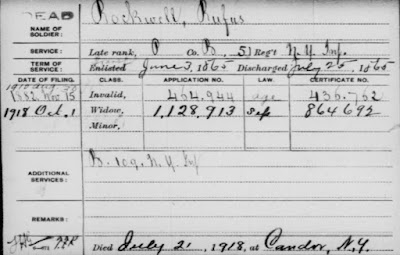 DEAD
NAME OF SOLDIER: Rockwell, Rufus
SERVICE: Late rank, P Co. B, 51 Reg't N.Y. Inf.
TERM OF SERVICE: Enlisted June 3, 1865 Discharged July 25, 1865
DATE OF FILING. CLASS. APPLICATION NO. LAW. CERTIFICATE NO.
1882 Nov. 15 Invalid, 464.944 age 436.752
1918 Oct. 1 Widow, 1,128,913 864692
Minor,
ADDITIONAL SERVICES: B. 109. N.Y. Inf
REMARKS:
Died July 21, 1918, at Candor, N.Y.